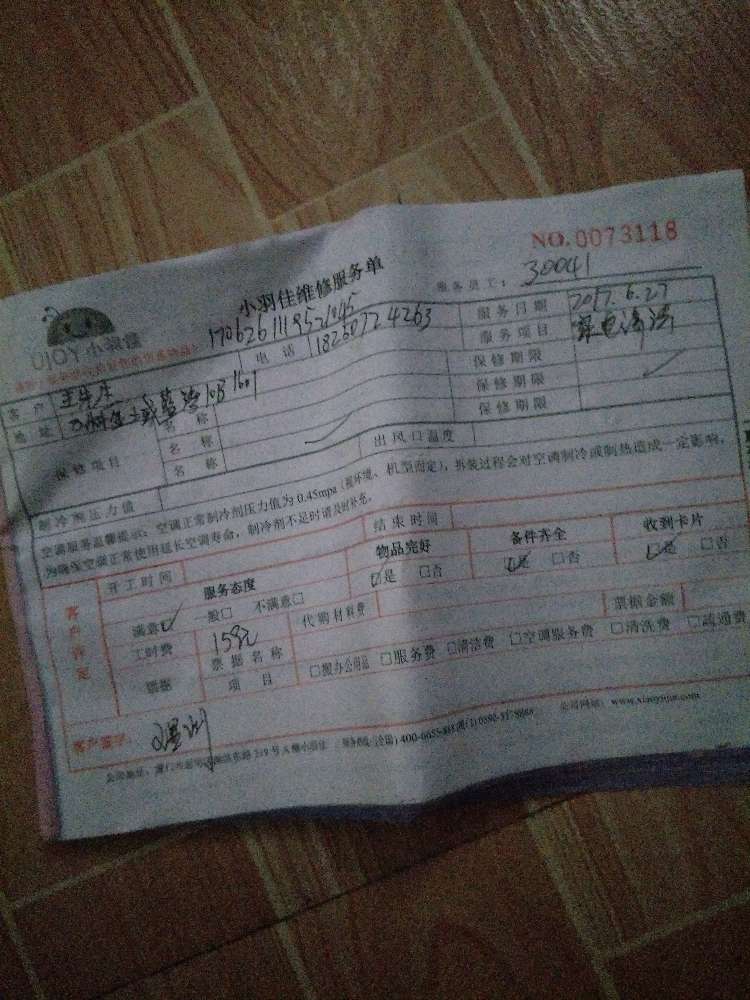 NO.0073118
小羽佳维修服务单
服务员工: 30041
YOJU
客户 王先生 电话 18250724263 服务日期 2017.6.27
地址 服务项目 家电清洗
保修项目 名称 保修期限
名称 保修期限
名称 保修期限
制冷剂压力值 出风口温度
空调服务温馨提示:空调正常制冷剂压力值为0.45mpa(视环境、机型而定),拆装过程会对空调制冷或制热造成一定影响,
为确保空调正常使用延长空调寿命,制冷剂不足时请及时补充。
客户评定 开工时间 结束时间
服务态度 物品完好 备件齐全 收到卡片
满意☑ 一般□ 不满意□ ☑是 □否 ☑是 □否 ☑是 □否
工时费 15元 代购材料费
票据 票据名称 票据金额
项目 □搬办公用品 □服务费 □清洁费 □空调服务费 □清洗费 □疏通费
客户签字:
公司网站:www.xiaoyujia.com